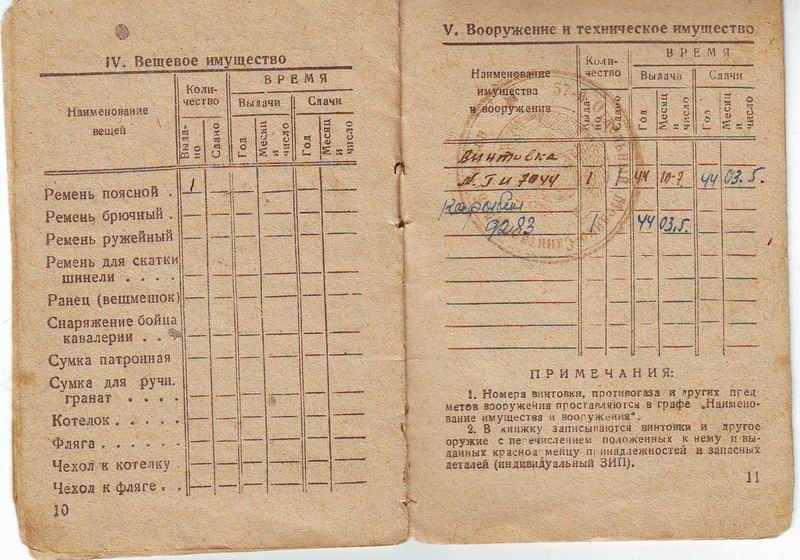 IV. Вещевое имущество
Наименование вещей
Коли-
чество
ВРЕМЯ
Выдачи
Сдачи
Выда-
но
Сдано
Год
Месяц и число
Год
Месяц и число
Ремень поясной . 1
Ремень брючный .
Ремень ружейный
Ремень для скатки
шинели . . . .
Ранец (вещмешок)
Снаряжение бойца
кавалерии . . .
Сумка патронная
Сумка для ручн.
гранат . . . .
Котелок . . . .
Фляга . . . . .
Чехол к котелку
Чехол к фляге . . .
10
V. Вооружение и техническое имущество
Наименование
имущества
и вооружения
Коли-
чество
ВРЕМЯ
Выдачи
Сдачи
Выда-
но
Сдано
Год
Месяц и число
Год
Месяц и число
винтовка
7044 1 1 44 44 03.5.
Карабин
9283 1 44 03.5.
ПРИМЕЧАНИЯ:
1. Номера винтовки, противогаза и других пред-
метов вооружения проставляются в графе „Наимено-
вание имущества и вооружения".
2. В книжку записываются винтовки и другое
оружие с перечислением положенных к нему и вы-
данных красноармейцу принадлежностей и запасных
деталей (индивидуальный ЗИП).
11